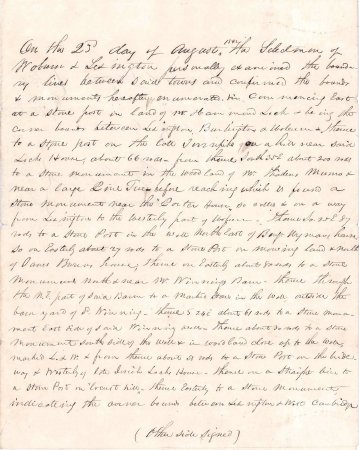 On this 23d day of August, the Selectmen of
Woburn & Lexington personally examined the bounda-
ry lines between said towns and confirmed the bounds
& monuments hereafter enumerated, viz. Commencing East
at a stone post on land of Mr Hammond Lock & being the
corner bounds between Lexington, Burlington & Woburn & thence
to a Stone post on the late Turnpike, on a hill near said
Locks House, about 66 rods from thence South 35 E about 200 rods
to a Stone monument in the wood land of Mr Munro &
near a large Pine Tree before reaching which is found a
Stone Monument near the Porter House, so called & on a way
from Lexington to the Westerly part of Woburn. Thence
to a Stone Post in the wall North East of Wymans house,
So on Easterly about rods to a Stone Post on mowing land & north
of House; thence on Easterly about rods to a Stone
Monument North & near Mr Winning Barn - thence through
the N.E. part of said Barn to a Marked Stone in the wall outside the
barn yard of Winning - thence S 24 E 61 rods to a Stone monu-
ment East side of said Winning thence about rods to a Stone
Monument South side of the wall & in wood land close up to the wall,
marked L & W & from thence about rods to a Stone Post on the
way & Westerly of late Locks House - thence on a Straight line to
a Stone Post on Locust hill, thence Easterly to a Stone Monument
indicating the corner bounds between Lexington & West Cambridge
(Other side signed)